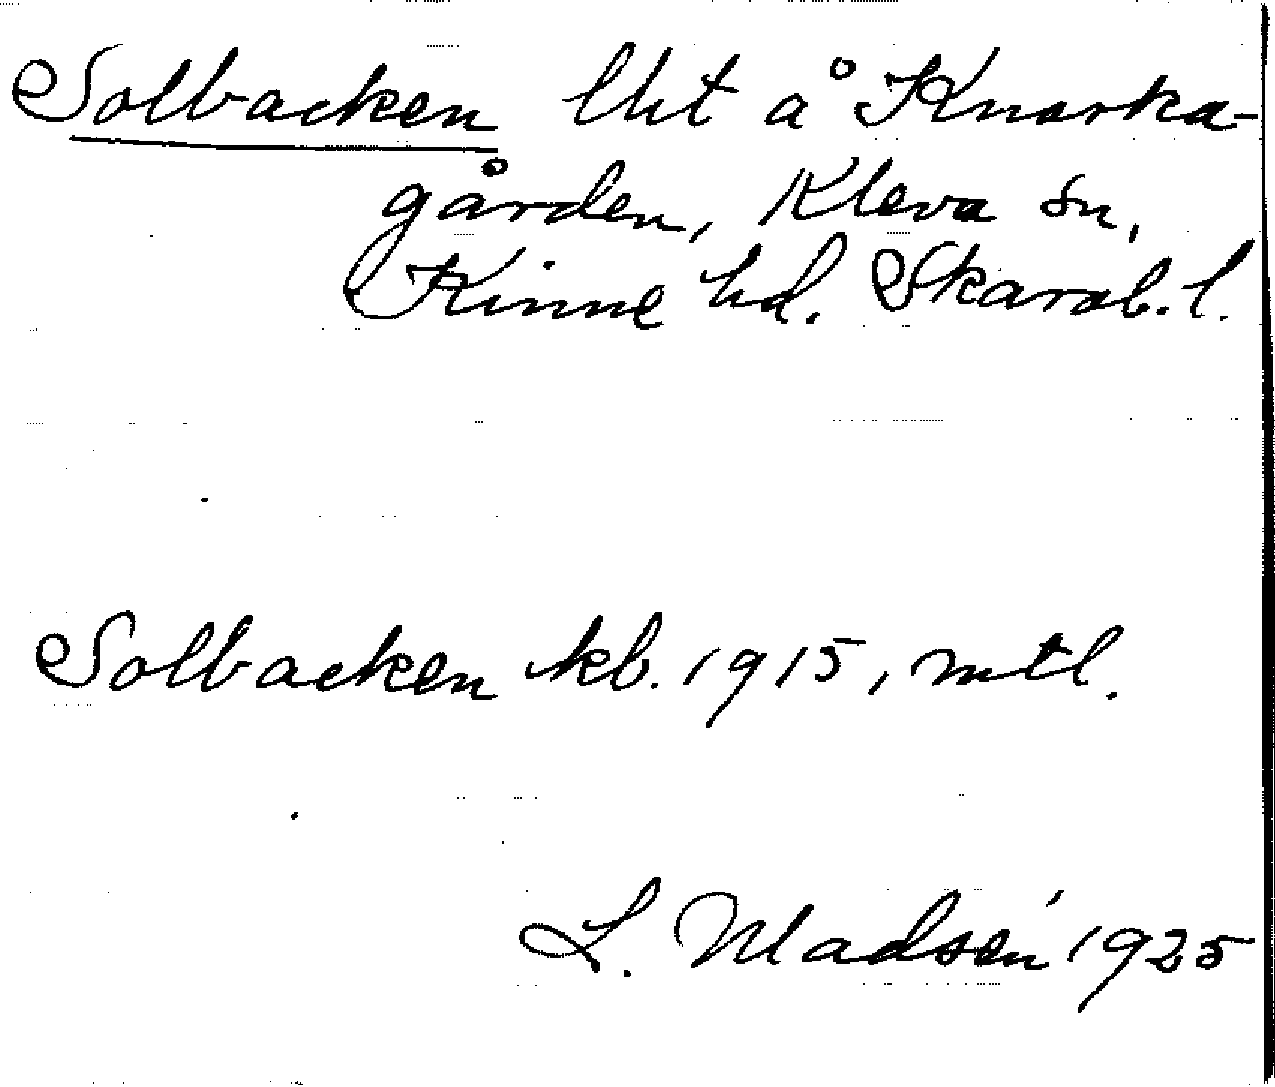 Solbacken lht å Knarka-
gården, Kleva sn,
Kinne hd. Skarab. l.
Solbacken kb. 1915, mtl.
L. Madsén 1925